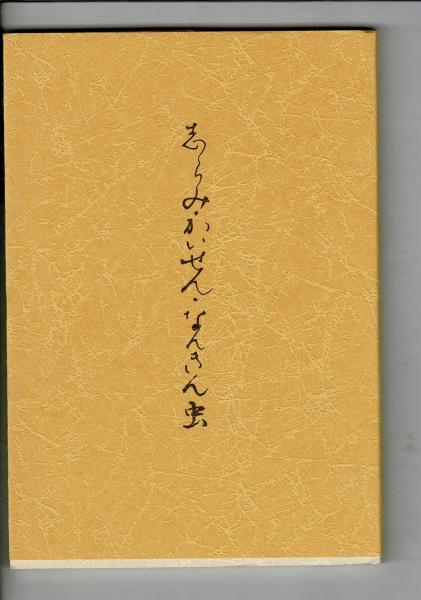 志らみ・かいせん・なんきん虫